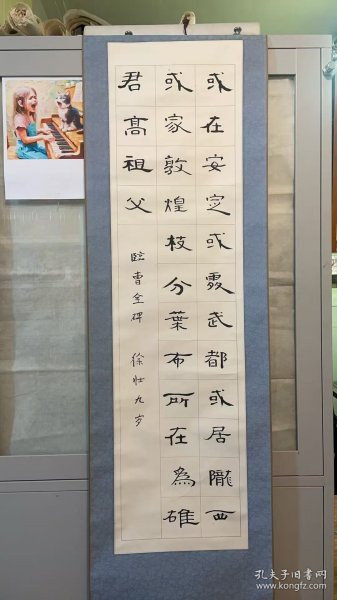 或在安定或處武都或居隴西
或家敦煌枝分葉布所在為雄
君高祖父
臨曹全碑 徐壮九岁
孔夫子旧书网
www.kongfz.com